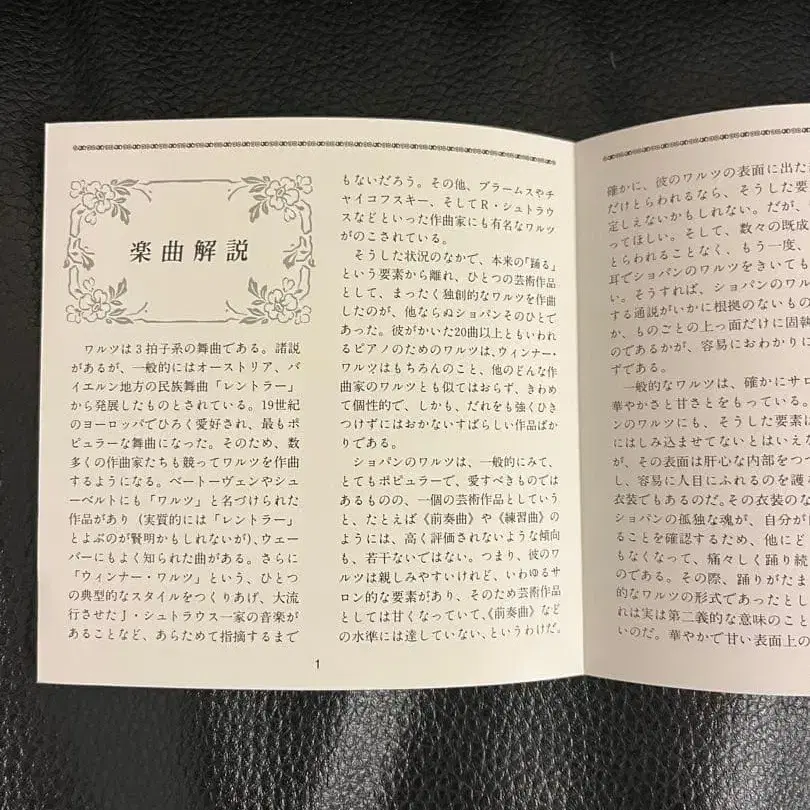 楽曲解説
ワルツは3拍子系の舞曲である。諸説
があるが、一般的にはオーストリア、バ
イエルン地方の民族舞曲「レントラー」
から発展したものとされている。19世紀
のヨーロッパでひろく愛好され、最もポ
ピュラーな舞曲になった。そのため、数
多くの作曲家たちも競ってワルツを作曲
するようになる。ベートーヴェンやシュ
ーベルトにも「ワルツ」と名づけられた
作品があり(実質的には「レントラー」
とよぶのが賢明かもしれないが)、ウェー
バーにもよく知られた曲がある。さらに
「ウィンナー・ワルツ」という、ひとつ
の典型的なスタイルをつくりあげ、大流
行させたJ・シュトラウス一家の音楽が
あることなど、あらためて指摘するまで
もないだろう。その他、ブラームスやチ
ャイコフスキー、そしてR・シュトラウ
スなどといった作曲家にも有名なワルツ
がのこされている。
そうした状況のなかで、本来の「踊る」
という要素から離れ、ひとつの芸術作品
として、まったく独創的なワルツを作曲
したのが、他ならぬショパンそのひとで
あった。彼がかいた20曲以上ともいわれ
るピアノのためのワルツは、ウィンナー・
ワルツはもちろんのこと、他のどんな作
曲家のワルツとも似てはおらず、きわめ
て個性的で、しかも、だれをも強くひき
つけずにはおかないすばらしい作品ばか
りである。
ショパンのワルツは、一般的にみて、
とてもポピュラーで、愛すべきものでは
あるものの、一個の芸術作品としていう
と、たとえば《前奏曲》や《練習曲》の
ようには、高く評価されないような傾向
も、若干ないではない。つまり、彼のワ
ルツは親しみやすいけれど、いわゆるサ
ロン的な要素があり、そのため芸術作品
としては甘くなっていて、《前奏曲》など
の水準には達していない、というわけだ。
1
確かに、彼のワルツの表面に出た
だけとらわれるなら、そうした要
定しえないかもしれない。だが、
ってほしい。そして、数々の既成
とらわれることなく、もう一度、
耳でショパンのワルツをきいても
い。そうすれば、ショパンのワル
する通説がいかに根拠のないもの
か、ものごとの上っ面だけに固執
のであるかが、容易におわかりに
ずである。
一般的なワルツは、確かにサロ
華やかさと甘さとをもっている。
ンのワルツにも、そうした要素に
にはしみ込ませてないとはいえ
が、その表面は肝心な内部をつ
し、容易に人目にふれるのを護る
衣装でもあるのだ。その衣装のな
ショパンの孤独な魂が、自分が
ることを確認するため、他にど
もなくなって、痛々しく踊り続
のである。その際、踊りがたま
的なワルツの形式であったとし
れは実は第二義的な意味のこと
いのだ。華やかで甘い表面上の